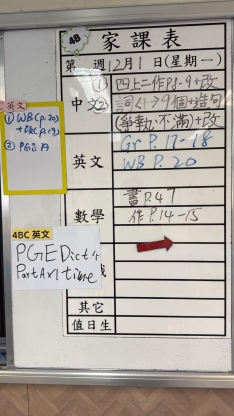 4B
家課表
第 週12月1日(星期一)
中文
① 四上二作P.8-9+改
② 詞(一)→9個+造句
(爭執、不滿)+改
英文
Gr P.17-18
WB P.20
數學
書P.47
作P.14-15
其它
值日生
英文
① WB(p.20)
+改(p.19)
4BC 英文
PGE Dict 4
Part A×1 time